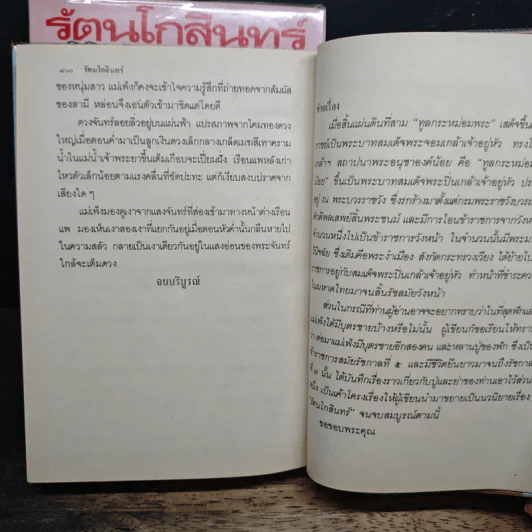 รัตนโกสินทร์
๘๐๐ รัตนโกสินทร์
ของหนุ่มสาว แม่เพ็งก็คงจะเข้าใจความรู้สึกที่ถ่ายทอดจากสัมผัส
ของสามี หล่อนจึงเอนตัวเข้ามาชิดแต่โดยดี
ดวงจันทร์ลอยลิ่วอยู่บนแผ่นฟ้า แปรสภาพจากโคมทองดวง
ใหญ่เมื่อตอนค่ำมาเป็นลูกเงินดวงเล็กกลางเกล็ดเมฆสีเทาคราม
น้ำในแม่น้ำเจ้าพระยาขึ้นเต็มเกือบจะเปี่ยมฝั่ง เรือนแพหลังเก่า
ไหวตัวเล็กน้อยตามแรงคลื่นที่ซัดปะทะ แต่ก็เงียบสงบปราศจาก
เสียงใด ๆ
แม่เพ็งมองดูเงาจากแสงจันทร์ที่ส่องเข้ามาทางหน้าต่างเรือน
แพ มองเห็นเงาสองเงาที่แยกกันอยู่เมื่อตอนหัวค่ำนั้นกลืนหายไป
ในความสลัว กลายเป็นเงาเดียวกันอยู่ในแสงอ่อนของพระจันทร์
ใกล้จะเต็มดวง
จบบริบูรณ์
ท้ายเรื่อง
เมื่อสิ้นแผ่นดินที่สาม “ทูลกระหม่อมพระ” เสด็จขึ้น
ราชย์เป็นพระบาทสมเด็จพระจอมเกล้าเจ้าอยู่หัว ทรงโ
เกล้าฯ สถาปนาพระอนุชาองค์น้อย คือ “ทูลกระหม่อม
น้อย” ขึ้นเป็นพระบาทสมเด็จพระปิ่นเกล้าเจ้าอยู่หัว ประ
อยู่ ณ พระบวรราชวัง ซึ่งรกร้างมาตั้งแต่กรมพระราชวังบวรม
ศักดิพลเสพย์สิ้นพระชนม์ และมีการโอนข้าราชการจากวังหลวง
จำนวนหนึ่งไปเป็นข้าราชการวังหน้า ในจำนวนนั้นมีพระม
วินิจฉัย ซึ่งเดิมคือพระงำเมือง สังกัดกระทรวงเวียง ได้ย้ายไป
ราชการอยู่กับสมเด็จพระปิ่นเกล้าเจ้าอยู่หัว ทำหน้าที่ชำระคว
ในมหาดไทยมาจนสิ้นรัชสมัยวังหน้า
ส่วนในกรณีที่ท่านผู้อ่านอาจจะอยากทราบว่าในที่สุดฟักและ
แม่เพ็งได้มีบุตรชายบ้างหรือไม่นั้น ผู้เขียนก็ขอเรียนให้ทราบ
ว่า ต่อมาแม่เพ็งมีบุตรชายอีกสองคน และหลานปู่ของฟัก ซึ่งเป็น
ข้าราชการสมัยรัชกาลที่ ๕ และมีชีวิตยืนยาวมาจนถึงรัชกาล
ที่ ๗ นั้น ได้บันทึกเรื่องราวเกี่ยวกับปู่และย่าของท่านเอาไว้ส่วน
หนึ่ง เป็นเค้าโครงเรื่องให้ผู้เขียนนำมาขยายเป็นนวนิยายเรื่อง
“รัตนโกสินทร์” จนจบสมบูรณ์ตามนี้
ขอขอบพระคุณ